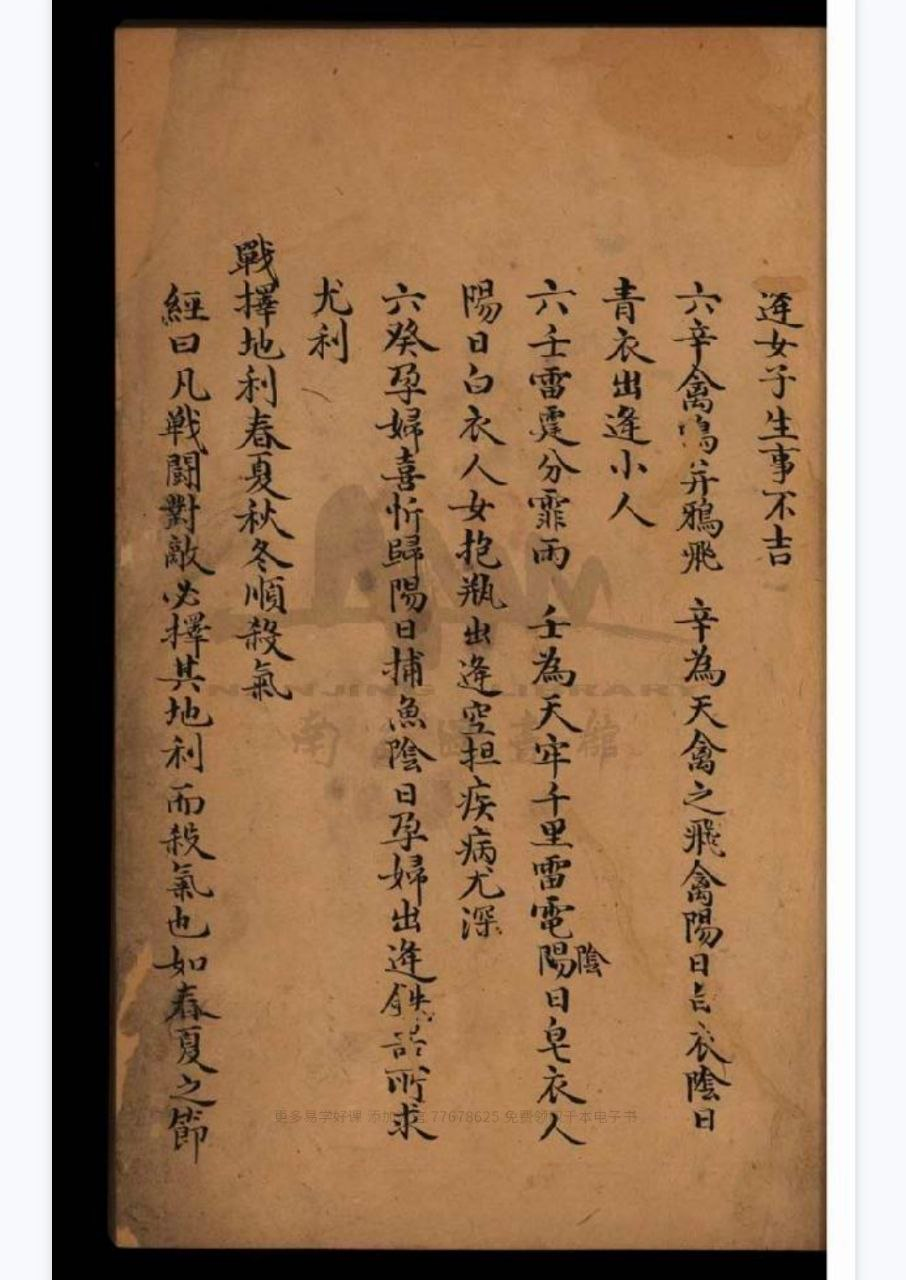 逄女子生事不吉
六辛禽鳥并鴉飛　辛為天禽之飛禽陽日衣陰日
青衣出逄小人
六壬雷霆分霏雨　壬為天牢千里雷電陽日皂衣人
陰
陽日白衣人女抱瓶出逄空担疾病尤深
六癸孕婦喜忻歸陽日捕魚陰日孕婦出逄所求
尤利
戰擇地利春夏秋冬順殺氣
經曰凡戰鬪對敵必擇其地利而殺氣也如春夏之節
NANJING LIBRARY
南京圖書館
更多易学好课 添加 77678625 免费领取千本电子书